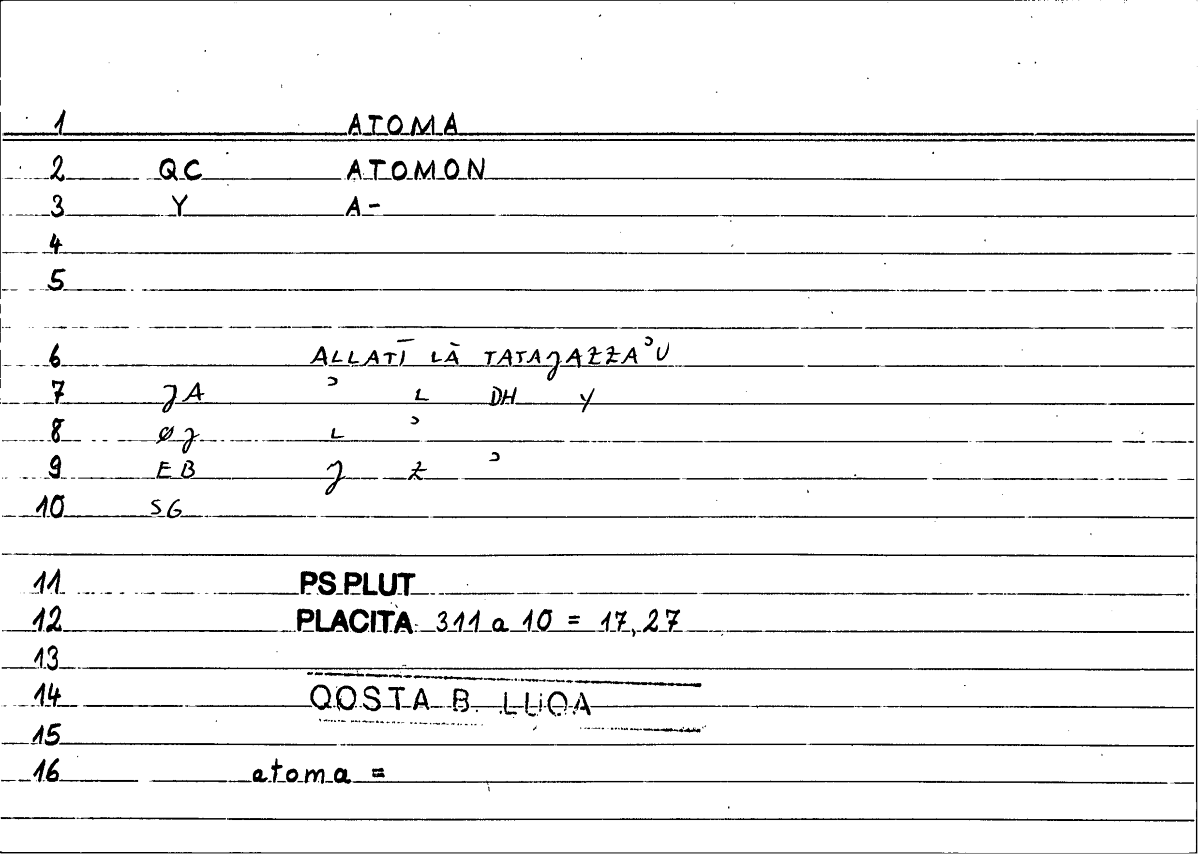 1 ATOMA
2 QC ATOMON
3 Y A-
4
5
6 ALLATĪ LĀ TATAȷAZZAʾU
7 ȷA ʾ L DH Y
8 Øȷ L ʾ
9 EB ȷ Z ʾ
10 SG
11 PS PLUT
12 PLACITA 311 a 10 = 17,27
13
14 QOSTA B. LUQA
15
16 atoma =